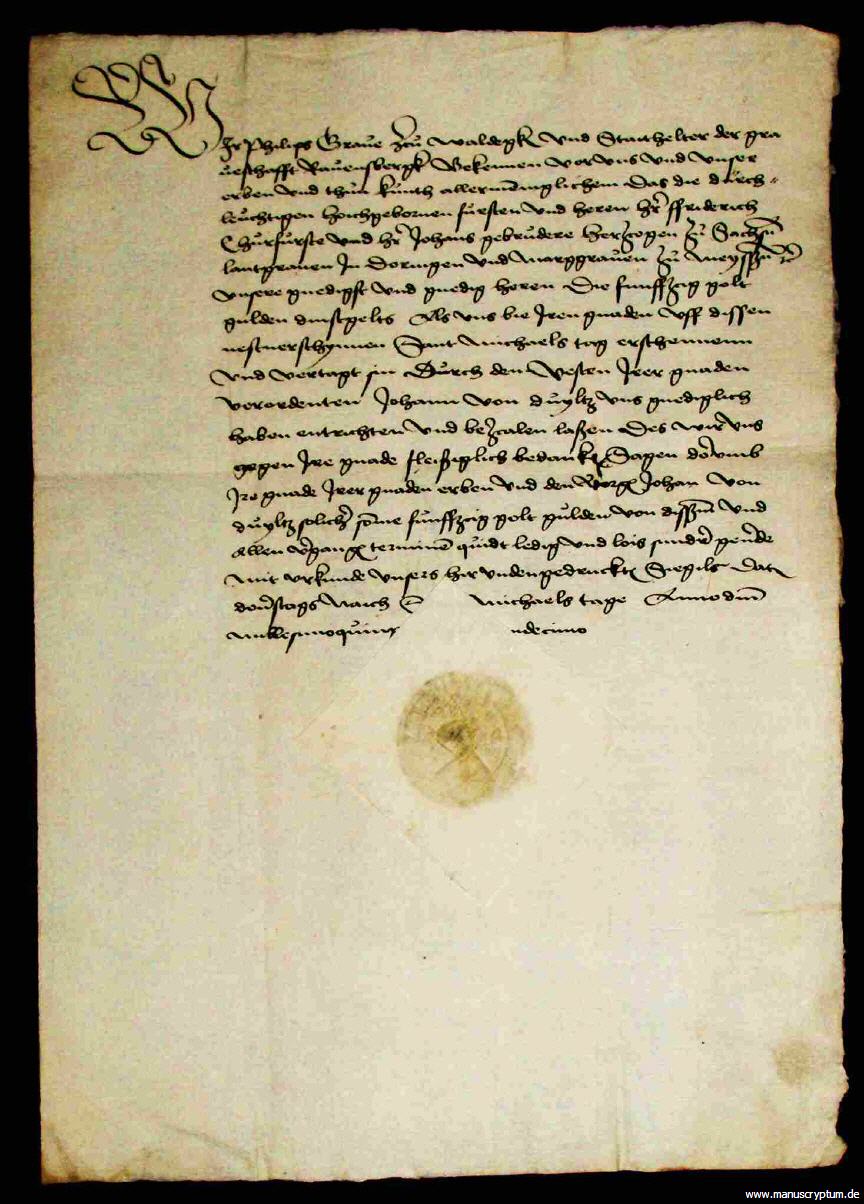 Wir Philips Graue zcu waldegk vnd Staathelter der gra
ueschafft Rauensbergk Bekennen vor vns vnd vnser
erben vnd thun kunth allermeniglichem Das die durch-
leuchtigen hochgebornen fursten vnd heren hr ffriderich
Churfurste vnd hr Johans gebrudere herzogen zu Sachsn
lantgrauen In Doringen vnd Marggrauen zu Meyssen
vnsere gnedigst vnd gnedig heren Die funffzig golt
gulden dinstgelts Als vns bie Iren gnaden vff dissen
nestuerschynnen Sant Michaels tag erschennenn
vnd vertagt sin Durch den Vesten Irer gnaden
verordenten Johann von duyltz vns gnediglich
haben entrichten vnd bezcalen laßen Des wir vns
gegen Ire gnade fleißiglich bedanken Sagen dorvmb
Ire gnade Irer gnaden erben vnd den Johan von
duyltz solicher some funffzig golt gulden von dissem vnd
allen vergang terminen quidt ledig vnd lois
mit vrkunde vnsers hir vnden gedruckt Siegils Dat
donstags nach Michaels tage Anno dm
Millesimo quin ndecimo
www.manuscryptum.de